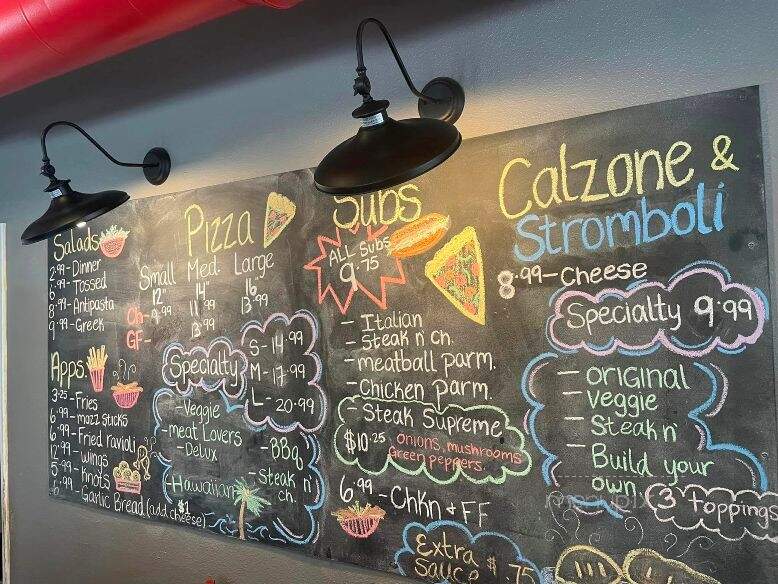 Salads
2.99 - Dinner
.99 - Tossed
8.99 - Antipasta
9.99 - Greek
Apps.
3.25 - Fries
6.99 - mozz sticks
6.99 - Fried ravioli
12.99 - wings
5.99 - Knots
6.99 - Garlic Bread (add cheese) $1
Pizza
Small Med. Large
12" 14" 16
Ch- 9.99 11.99 13.99
GF- 13.99
Specialty
S - 14.99
M - 17.99
L - 20.99
- Veggie
- meat Lovers
- Delux
- BBQ
- Hawaiian
- Steak n' ch.
Subs
ALL Subs
9.75
- Italian
- Steak n' ch.
- meatball parm.
- Chicken parm.
- Steak Supreme
$10.25 onions, mushrooms
Green peppers.
6.99 - Chkn + FF
Extra $.75
sauce
Calzone &
Stromboli
8.99 - Cheese
Specialty 9.99
- original
- veggie
- Steak n'
- Build your
own
3 toppings